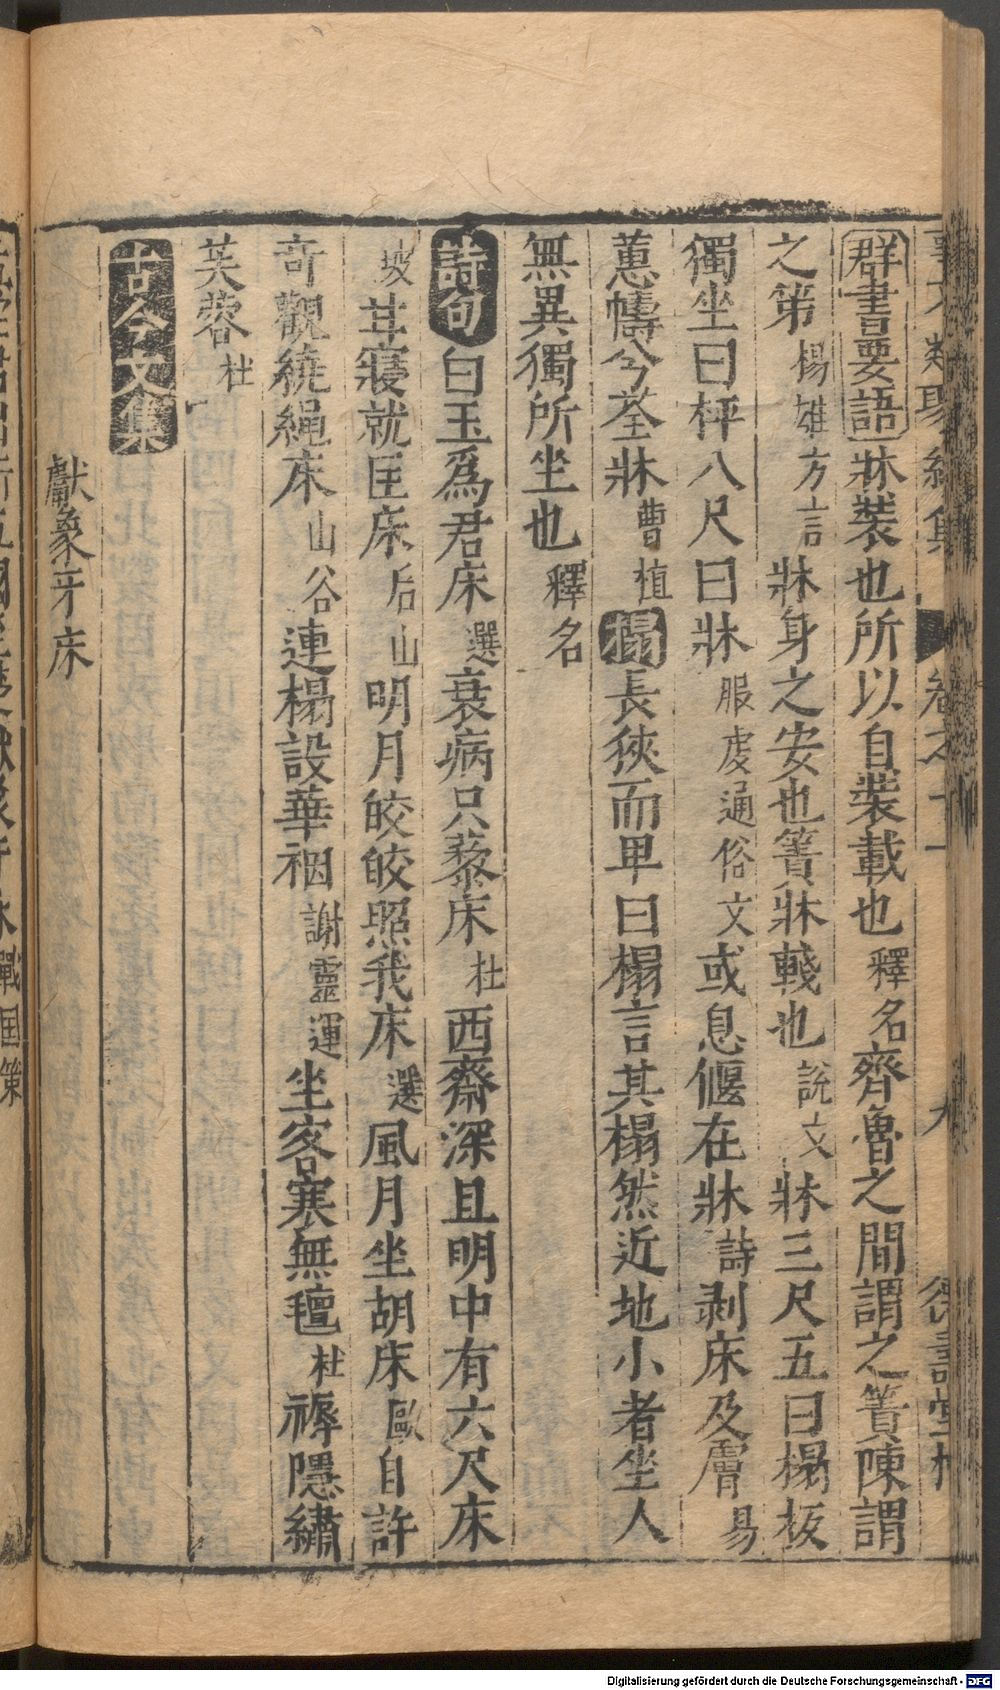 羣書要語牀裝也所以自裝載也釋名齊魯之間謂之簀陳謂
之第楊雄方言牀身之安也簀牀棧也說文牀三尺五曰榻板
獨坐曰枰八尺曰牀服虔通俗文或息偃在牀詩剥床及膚易
蕙幬兮荃牀曹植榻長狹而卑曰榻言其榻然近地小者坐人
無異獨所坐也釋名
詩句白玉爲君床選衰病只藜床杜西齋深且明中有六尺床
坡甘寢就匡床后山明月皎皎照我床選風月坐胡床歐自許
奇觀繞繩床山谷連榻設華裀謝靈運坐客寒無氊杜褥隱繡
芙蓉杜
古今文集
獻象牙床
Digitalisierung gefördert durch die Deutsche Forschungsgemeinschaft - DFG